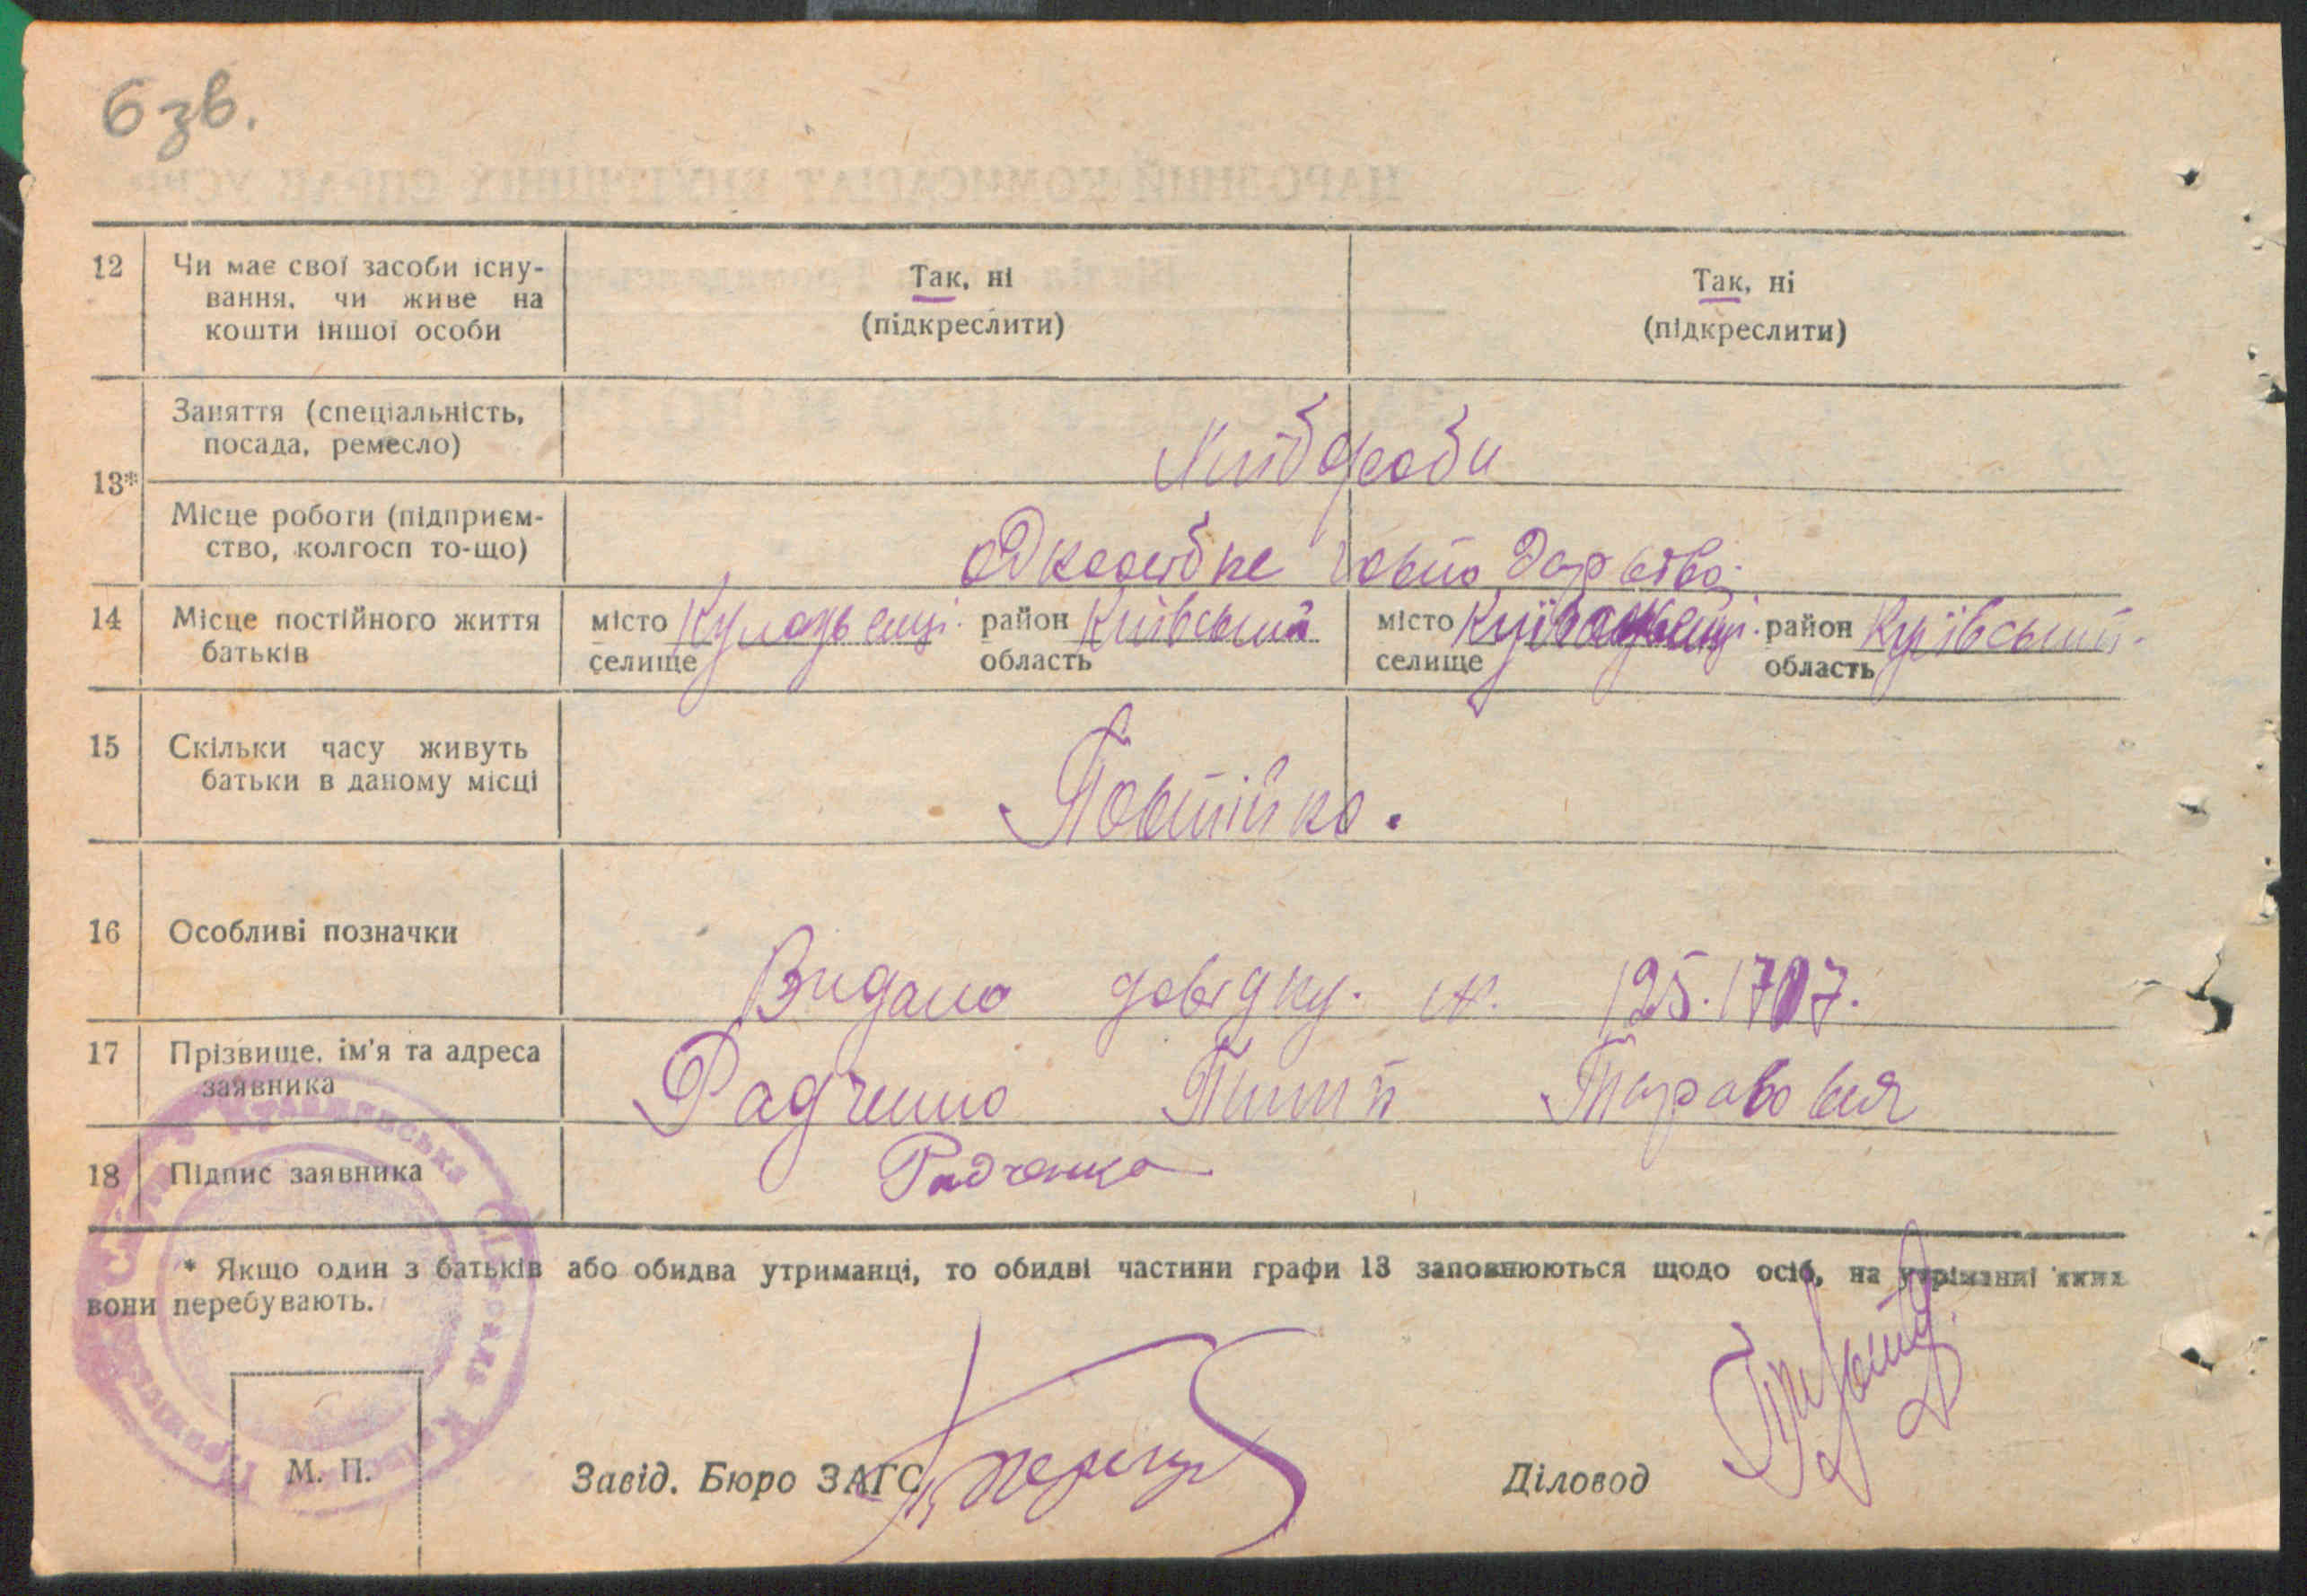 6 зв.
12 Чи має свої засоби існу-
вання, чи живе на
кошти іншої особи
Так, ні
(підкреслити)
Так, ні
(підкреслити)
13* Заняття (спеціальність,
посада, ремесло)
Хліброби
Місце роботи (підприєм-
ство, колгосп то-що)
14 Місце постійного життя
батьків
місто
селище
район Київський
область
місто
селище
район Київський
область
15 Скільки часу живуть
батьки в даному місці
Постійно.
16 Особливі позначки
Видано довідку. №. 125.1707.
17 Прізвище, ім'я та адреса
заявника
Радченко Тарасовія
18 Підпис заявника
Радченко
* Якщо один з батьків або обидва утриманці, то обидві частини графи 13 заповнюються щодо осіб, на утріманні яких
вони перебувають.
М. П.
Завід. Бюро ЗАГС
Діловод